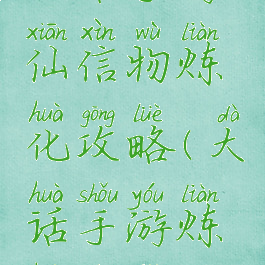 xiān xìn wù liàn
仙信物炼
huà gōng lüè dà
化攻略(大
huà shǒu yóu liàn
话手游炼